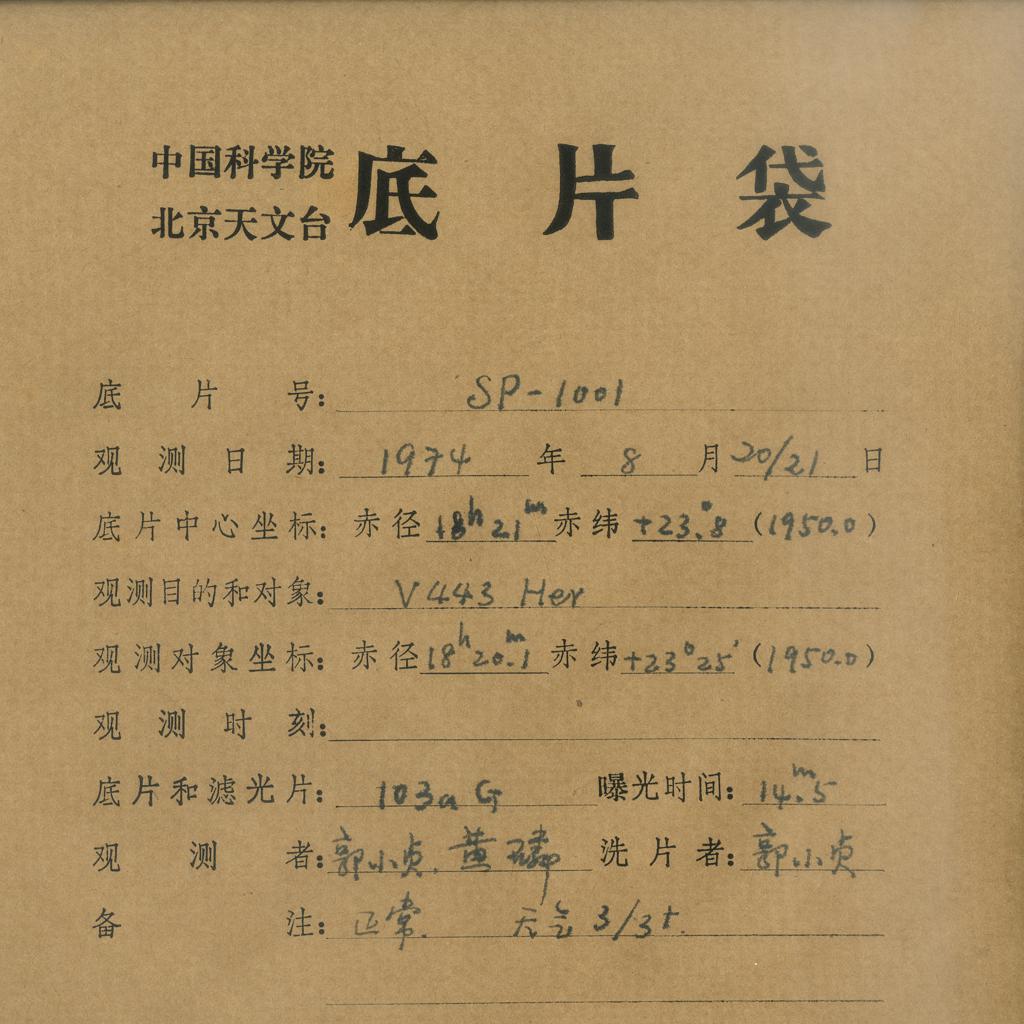 中国科学院
北京天文台
底片袋
底片号: SP-1001
观测日期: 1974 年 8 月 20/21 日
底片中心坐标: 赤径 18h 21m 赤纬 +23°.8 (1950.0)
观测目的和对象: V443 Her
观测对象坐标: 赤径 18h 20m.1 赤纬 +23°25′ (1950.0)
观测时刻:
底片和滤光片: 103a G 曝光时间: 14m.5
观测者: 郭小贞. 黄磷 洗片者: 郭小贞
备注: 正常. 天气 3/35.